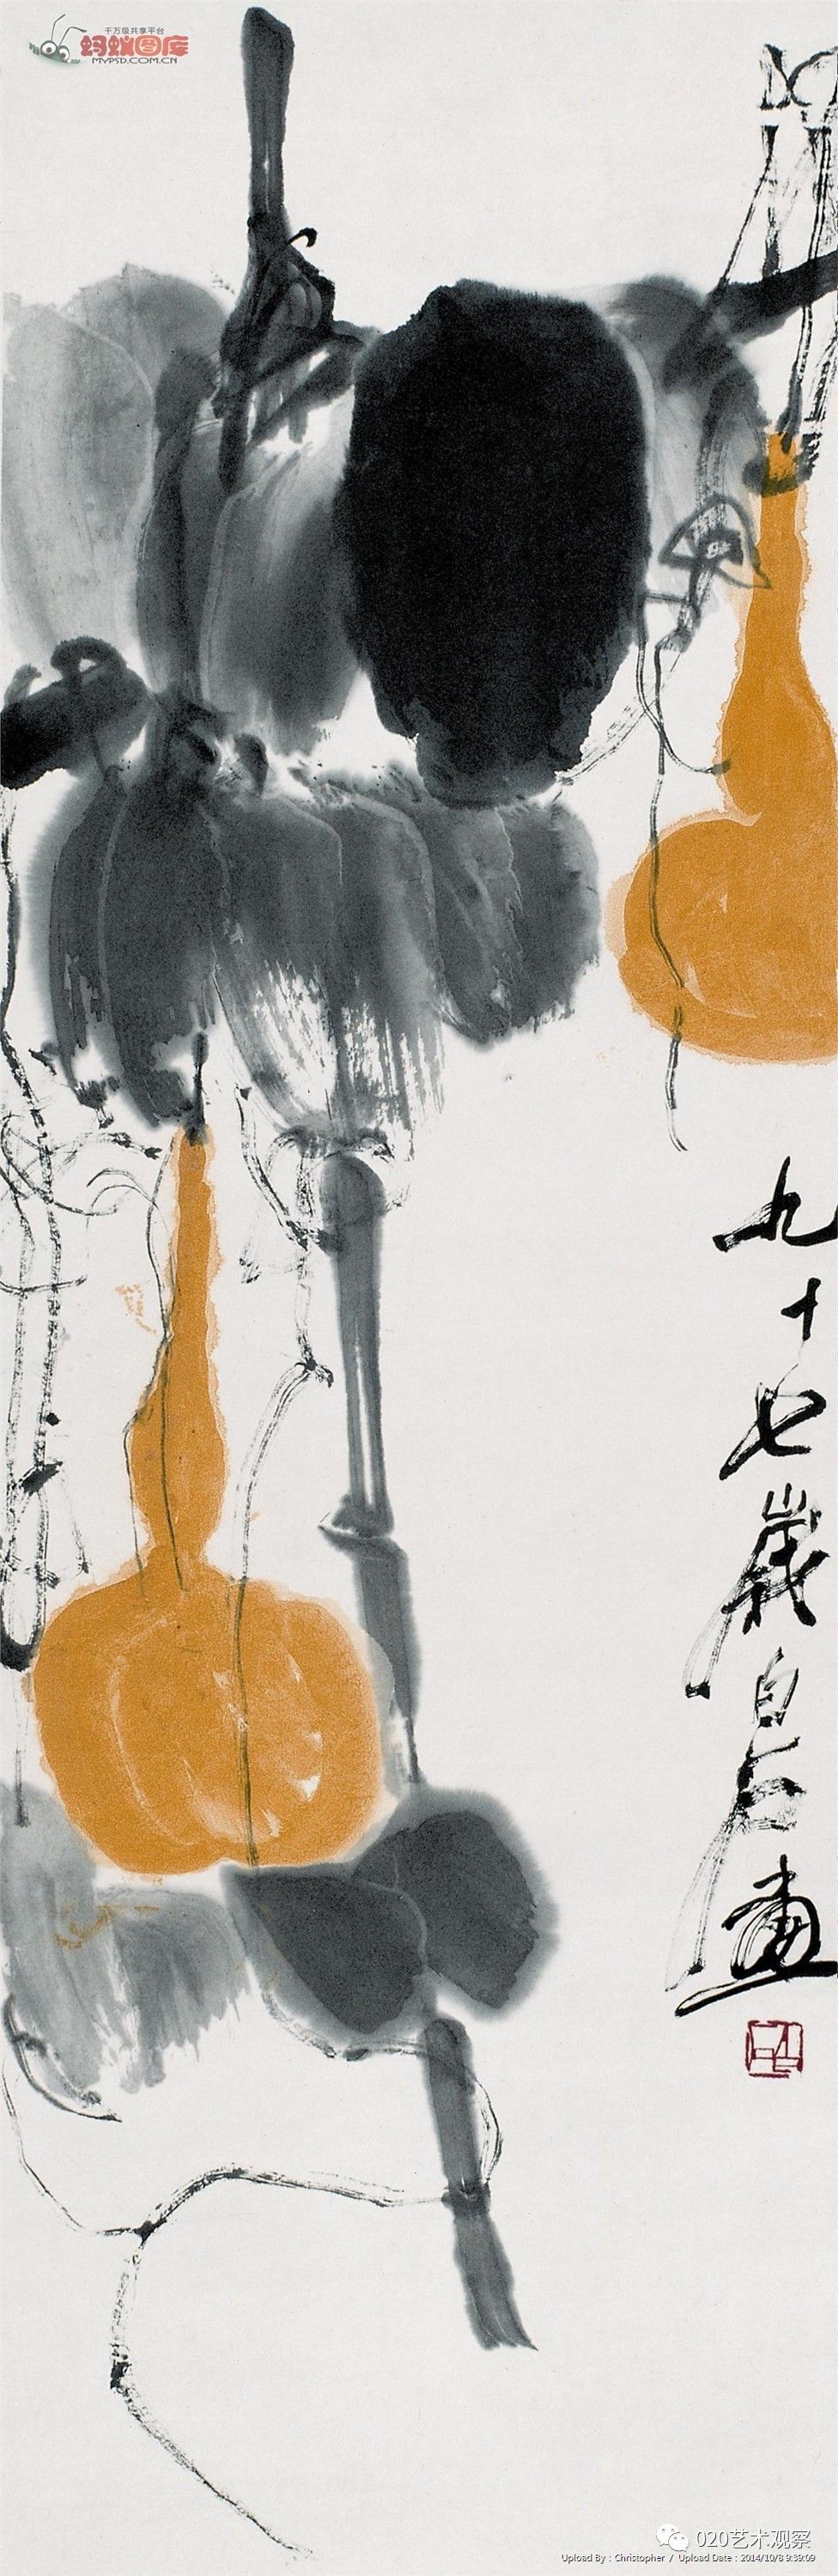 千万级共享平台
蚂蚁图库
MYPSD.COM.CN
九十七歲白石畫
020艺术观察
Upload By : Christopher / Upload Date : 2014/10/8 9:39:09